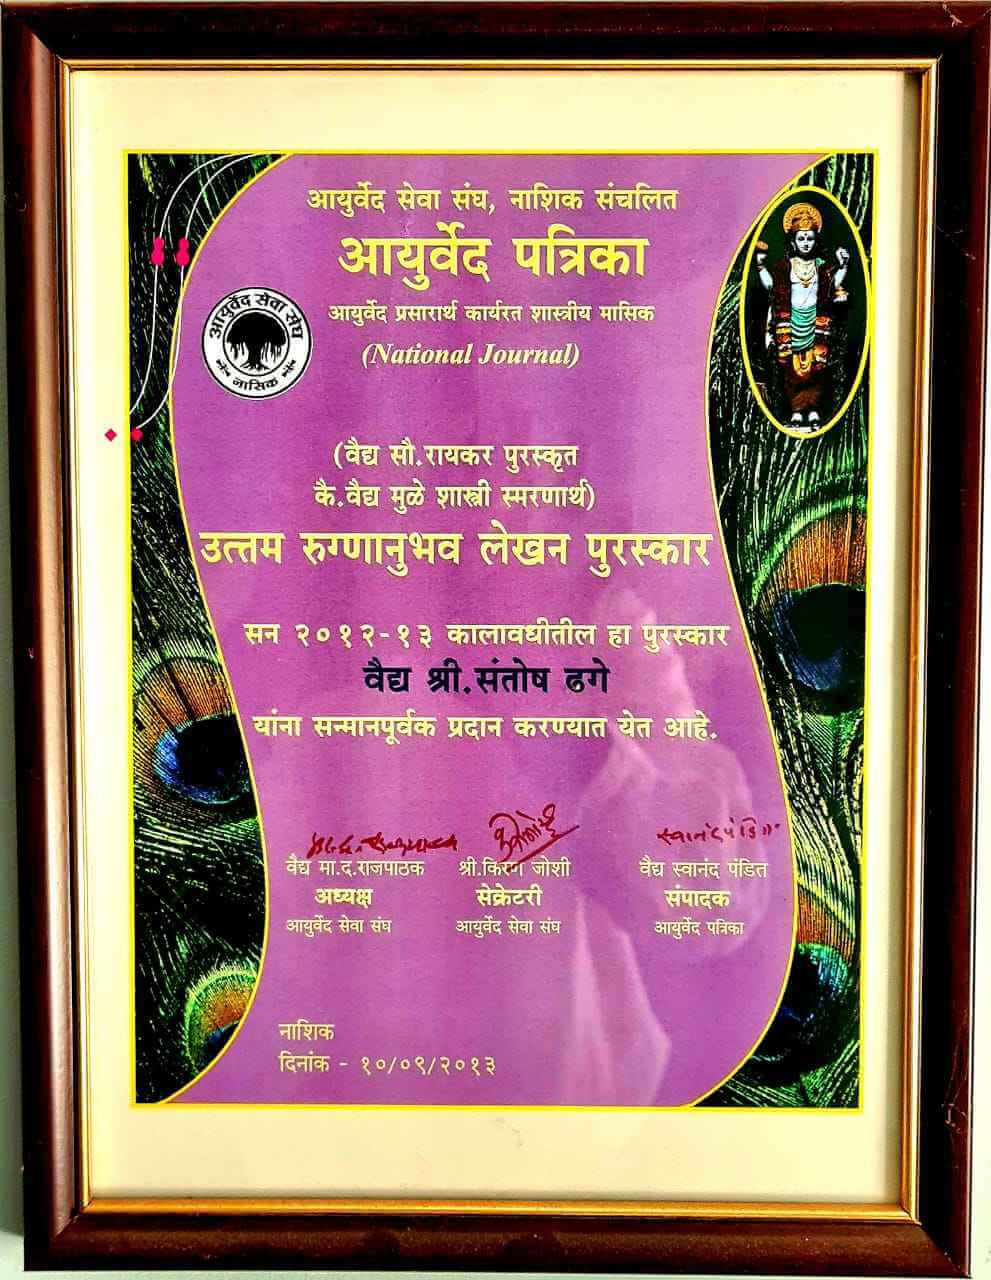 आयुर्वेद सेवा संघ, नाशिक संचलित
आयुर्वेद पत्रिका
आयुर्वेद प्रसारार्थ कार्यरत शास्त्रीय मासिक
(National Journal)
आयुर्वेद सेवा संघ
नासिक
(वैद्य सौ.रायकर पुरस्कृत
कै.वैद्य मुळे शास्त्री स्मरणार्थ)
उत्तम रुग्णानुभव लेखन पुरस्कार
सन २०१२-१३ कालावधीतील हा पुरस्कार
वैद्य श्री.संतोष ढगे
यांना सन्मानपूर्वक प्रदान करण्यात येत आहे.
वैद्य मा.द.राजपाठक श्री.किरण जोशी वैद्य स्वानंद पंडित
अध्यक्ष सेक्रेटरी संपादक
आयुर्वेद सेवा संघ आयुर्वेद सेवा संघ आयुर्वेद पत्रिका
नाशिक
दिनांक - १०/०९/२०१३